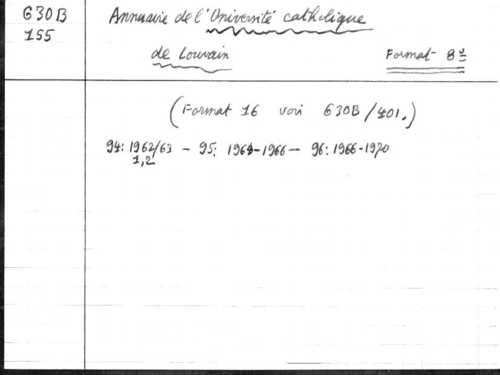 630B
155
Annuaire de l'Université catholique
de Louvain
Format 8º
(Format 16 voir 630B/401.)
94: 1962/63 - 95: 1964-1966 - 96: 1966-1970
1,2